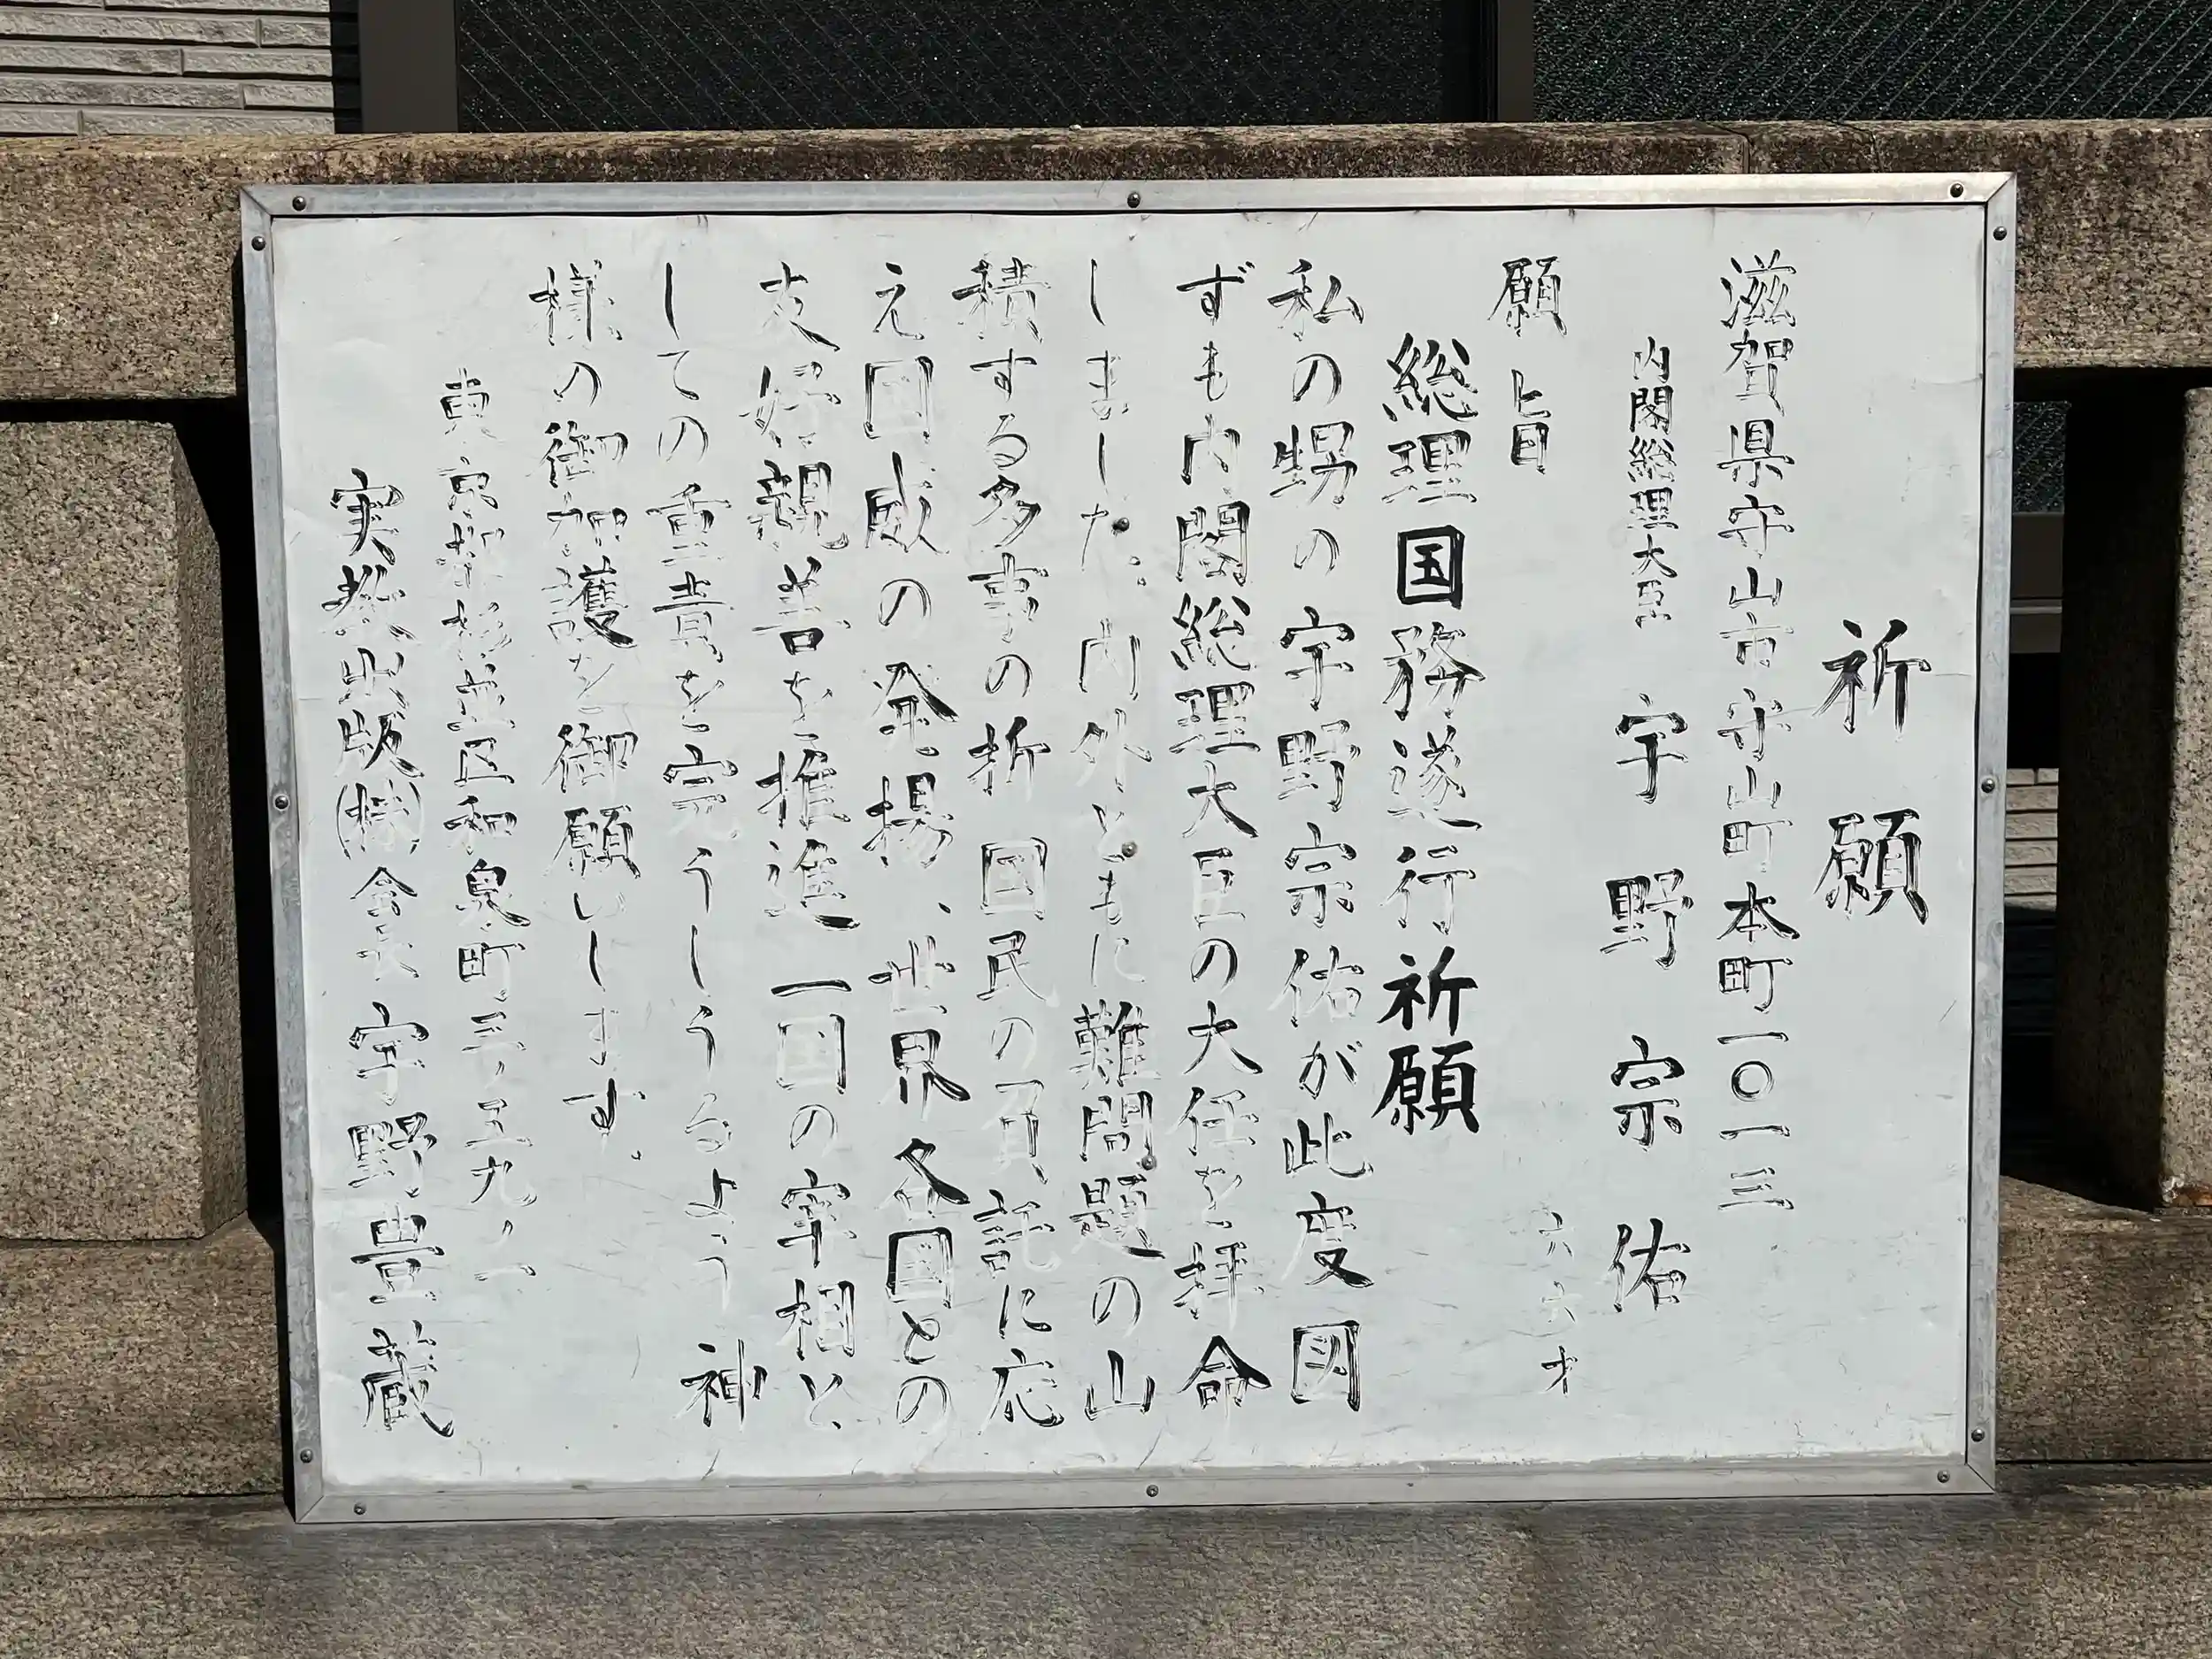 祈願
滋賀県守山市守山町本町一〇一三
内閣総理大臣 宇野宗佑
六六才
願旨
総理国務遂行祈願
私の甥の宇野宗佑が此度図
ずも内閣総理大臣の大任を拝命
しました。内外ともに難問題の山
積する多事の折国民の負託に応
え国威の発揚、世界各国との
友好親善を推進一国の宰相と
しての重責を完うしうるよう神
様の御加護を御願いします。
東京都杉並区和泉町三ノ五九ノ一
実教出版(株)会長宇野豊蔵